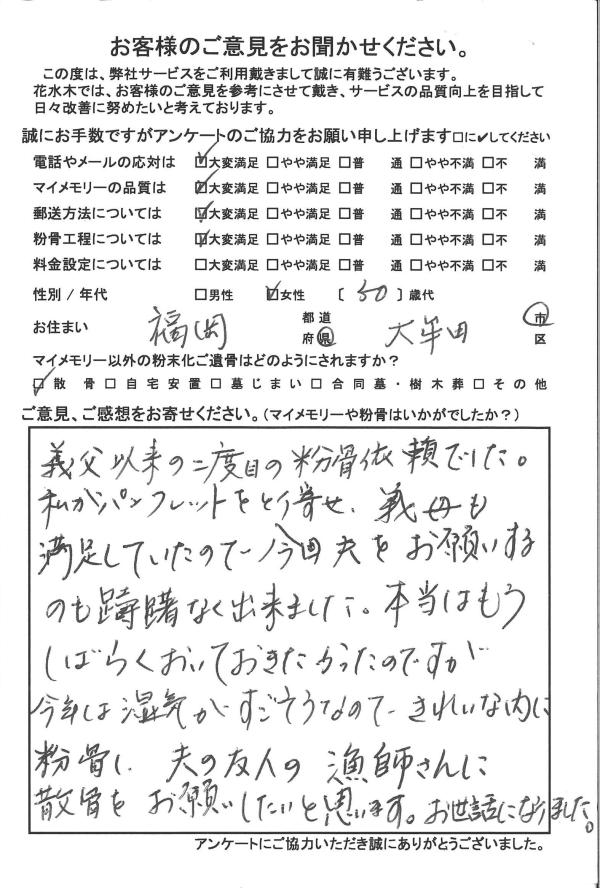 お客様のご意見をお聞かせください。
この度は、弊社サービスをご利用戴きまして誠に有難うございます。
花水木では、お客様のご意見を参考にさせて戴き、サービスの品質向上を目指して
日々改善に努めたいと考えております。
誠にお手数ですがアンケートのご協力をお願い申し上げます□に✔してください
電話やメールの応対は ☑大変満足 □やや満足 □普 通 □やや不満 □不 満
マイメモリーの品質は ☑大変満足 □やや満足 □普 通 □やや不満 □不 満
郵送方法については ☑大変満足 □やや満足 □普 通 □やや不満 □不 満
粉骨工程については ☑大変満足 □やや満足 □普 通 □やや不満 □不 満
料金設定については □大変満足 □やや満足 □普 通 □やや不満 □不 満
性別 / 年代 □男性 ☑女性 〔 50 〕歳代
お住まい 福岡 都道府県 大牟田 市区
マイメモリー以外の粉末化ご遺骨はどのようにされますか？
☑散 骨 □自宅安置 □墓じまい □合同墓・樹木葬 □その他
ご意見、ご感想をお寄せください。（マイメモリーや粉骨はいかがでしたか？）
義父以来の二度目の粉骨依頼でした。
私がパンフレットをとり寄せ、義母も
満足していたので今回夫をお願いする
のも躊躇なく出来ました。本当はもう
しばらくおいておきたかったのですが
今年は湿気がすごそうなので きれいな内に
粉骨し、夫の友人の漁師さんに
散骨をお願いしたいと思います。お世話になりました。
アンケートにご協力いただき誠にありがとうございました。